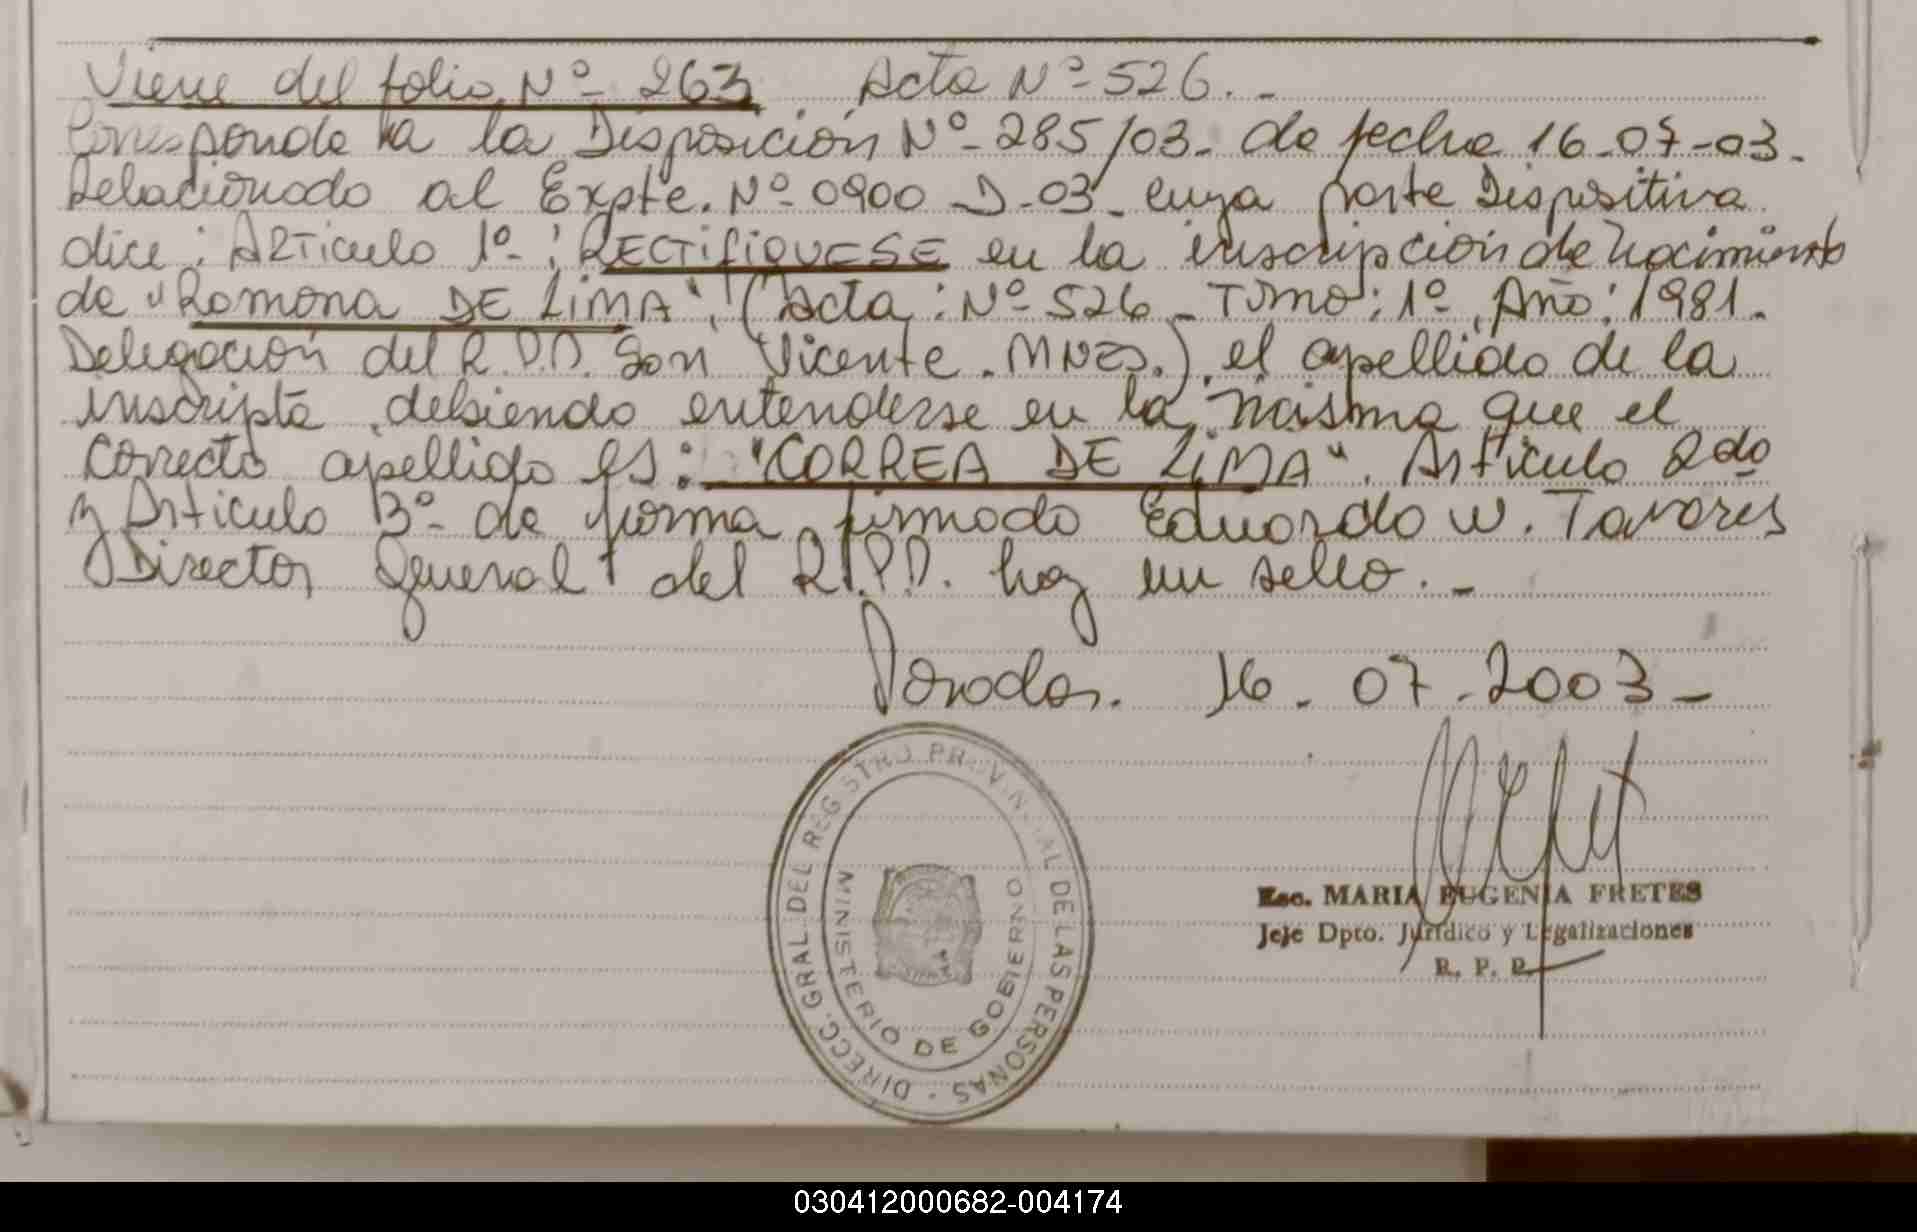 Viene del folio Nº 263 Acta Nº 526.-
Corresponde a la Disposición Nº 285/03- de fecha 16-07-03-
Relacionado al Expte. Nº 0900 D-03- cuya parte Dispositiva
dice: Articulo 1º: RECTIFIQUESE en la inscripción de Nacimiento
de "Ramona DE LIMA", (Acta: Nº 526 - Tomo: 1º, Año: 1981.
Delegación del R.P.P. San Vicente. MNES.) el apellido de la
inscripta, debiendo entenderse en la misma que el
correcto apellido es: "CORREA DE LIMA". Articulo 2do
y Articulo 3º de forma, firmado Eduardo W. Tavares
Director General del R.P.P. hay un sello.-
Posadas. 16-07-2003-
DIRECC. GRAL DEL REGISTRO PROVINCIAL DE LAS PERSONAS
MINISTERIO DE GOBIERNO
Esc. MARIA EUGENIA FRETES
Jefe Dpto. Jurídico y Legalizaciones
R. P. P.
030412000682-004174